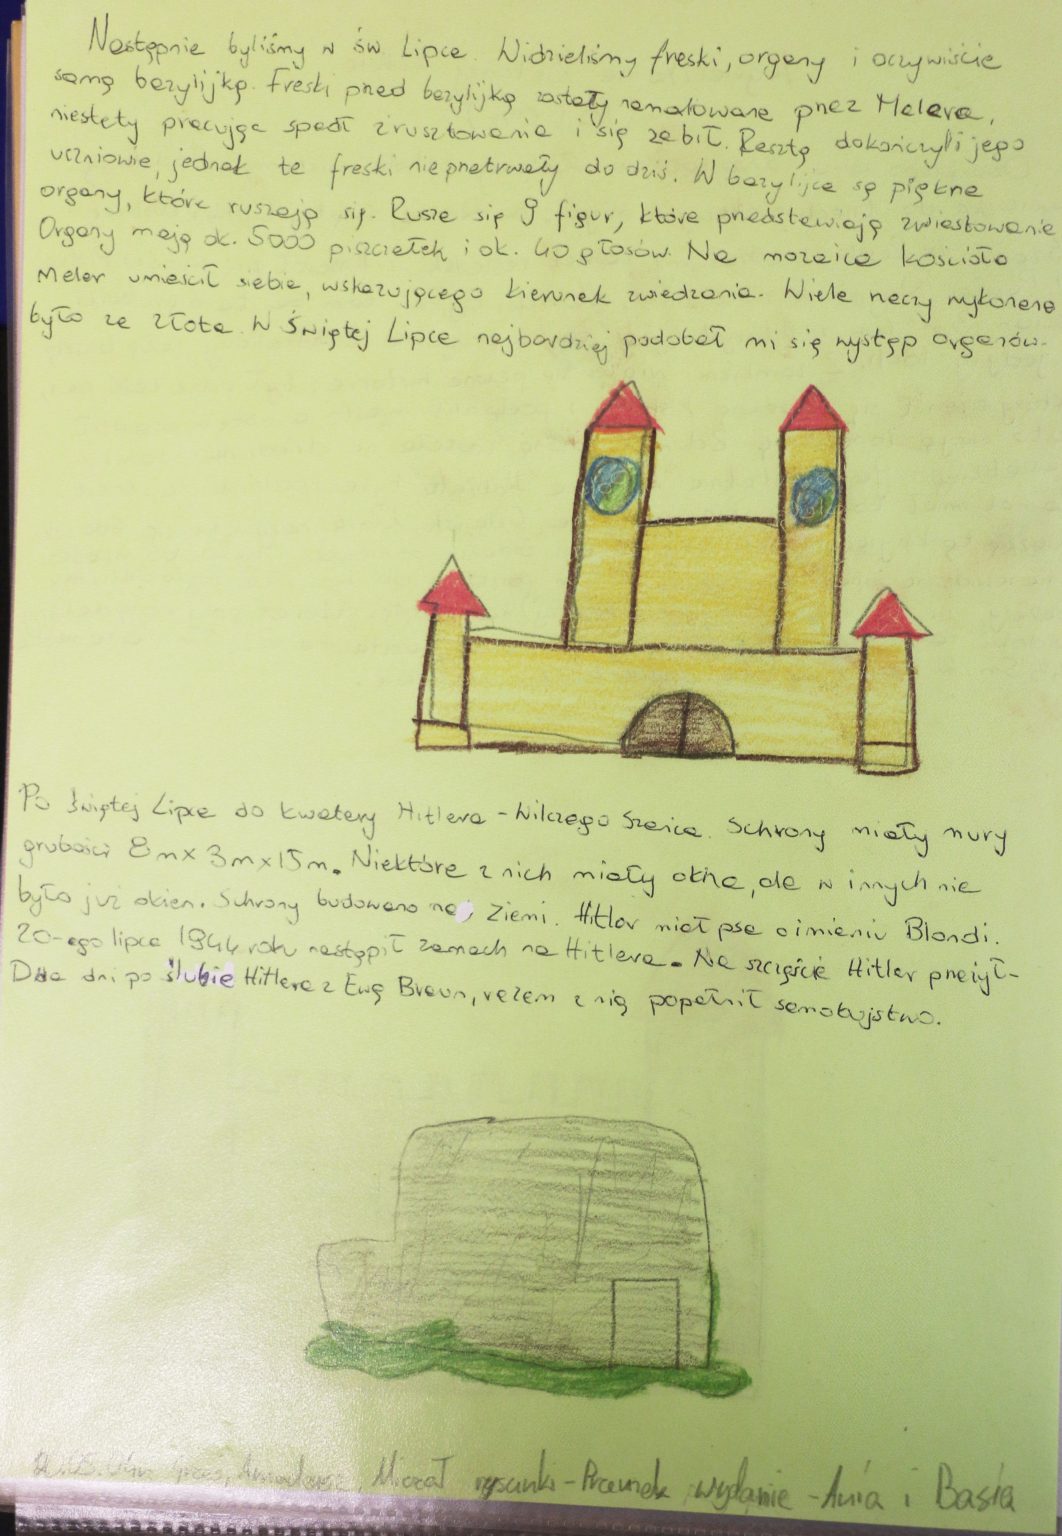 Następnie byliśmy w św Lipce. Widzieliśmy freski, organy i oczywiście
samą bazylijkę. Freski przed bazylijką zostały namalowane przez Melera,
niestety pracując spadł z rusztowania i się zabił. Resztę dokończyli jego
uczniowie, jednak te freski nie przetrwały do dziś. W bazylijce są piękne
organy, które ruszają się. Rusza się 9 figur, które przedstawiają zwiastowanie
Organy mają ok. 5000 piszczałek i ok. 40 głosów. Na mozaice kościoła
Meler umieścił siebie, wskazującego kierunek zwiedzania. Wiele rzeczy wykonane
było ze złota. W Świętej Lipce najbardziej podobał mi się występ organów.
Po Świętej Lipce do kwatery Hitlera - Wilczego Szańca. Schrony miały mury
grubości 8m x 3m x 15m. Niektóre z nich miały okna, ale w innych nie
było już okien. Schrony budowano na Ziemi. Hitler miał psa o imieniu Blondi.
20-ego lipca 1944 roku nastąpił zamach na Hitlera. Na szczęście Hitler przeżył-
Dwa dni po ślubie Hitlera z Ewą Braun, razem z nią popełnił samobójstwo.
Michał rysunki - Przemek wydanie - Ania i Basia